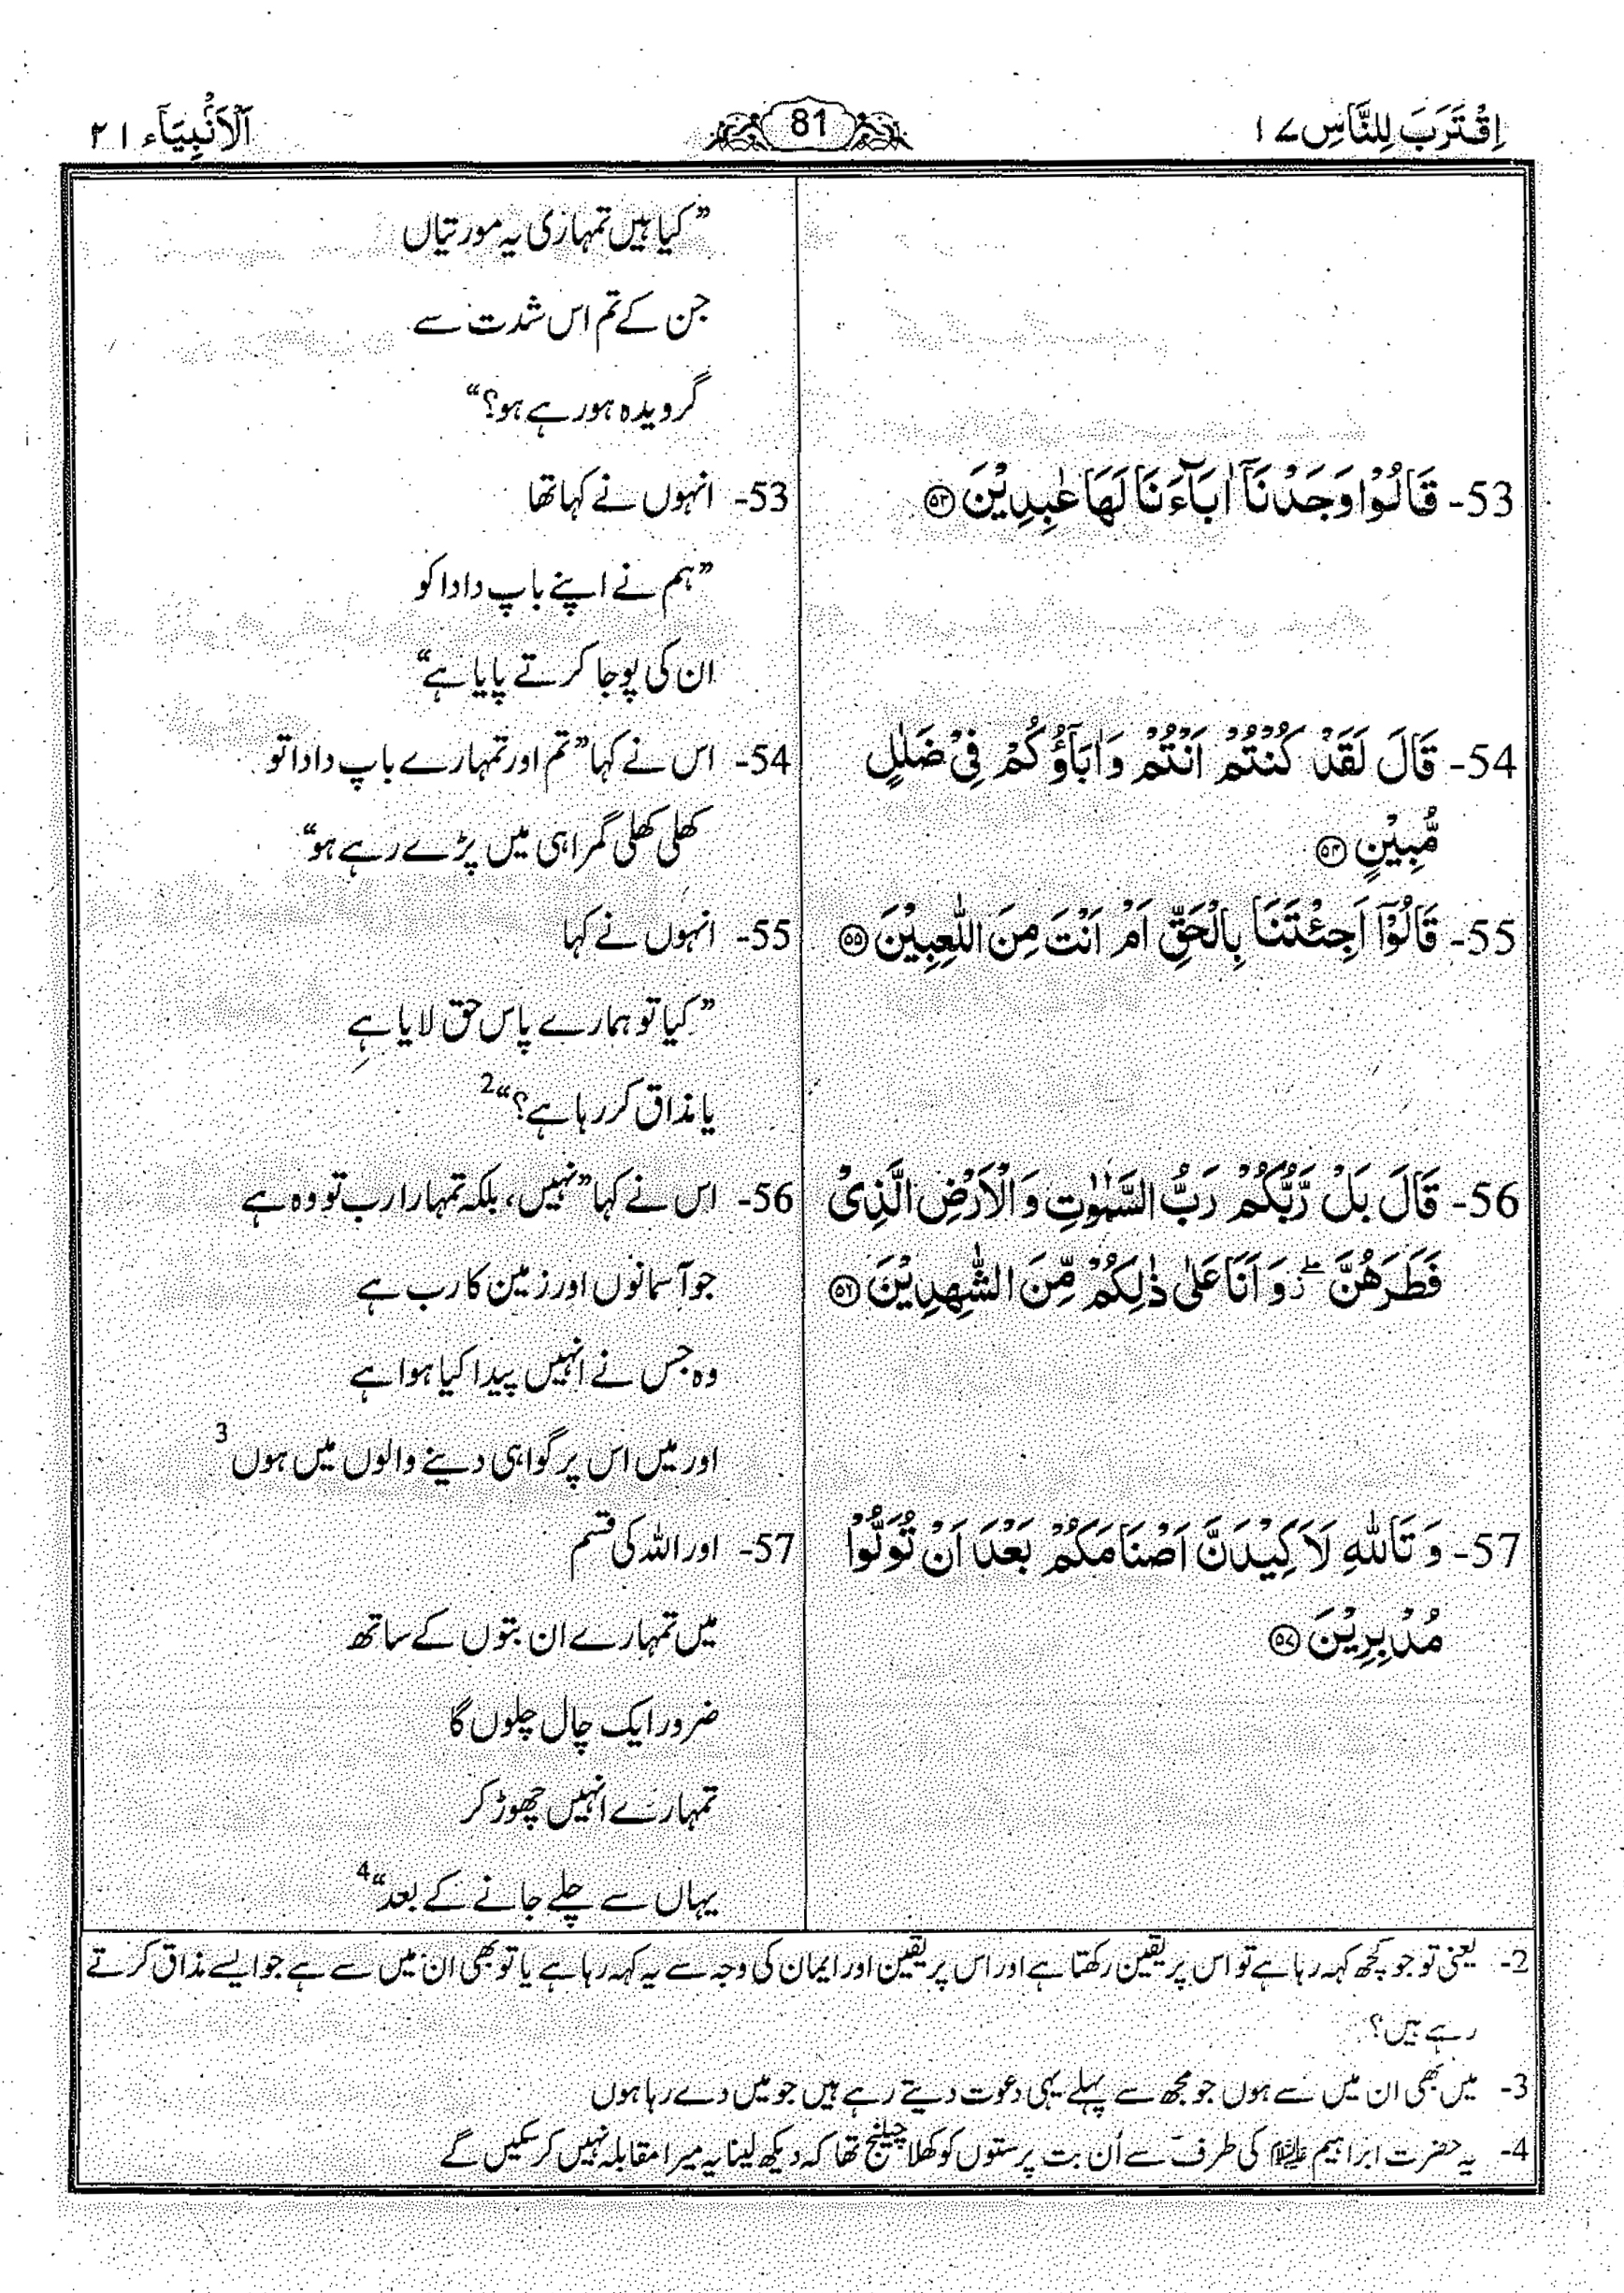 اِقْتَرَبَ لِلنَّاسِ ۱۷
81
اَلْاَنْۢبِيَآء ۲۱
”کیا ہیں تمہاری یہ مورتیاں
جن کے تم اس شدت سے
گرویدہ ہو رہے ہو؟“
53- قَالُوْا وَجَدْنَاۤ اٰبَآءَنَا لَهَا عٰبِدِيْنَ ﴿۵۳﴾
53- انہوں نے کہا تھا
”ہم نے اپنے باپ دادا کو
ان کی پوجا کرتے پایا ہے“
54- قَالَ لَقَدْ كُنْتُمْ اَنْتُمْ وَاٰبَآؤُكُمْ فِيْ ضَلٰلٍ
مُّبِيْنٍ ﴿۵۴﴾
54- اس نے کہا ”تم اور تمہارے باپ دادا تو
کھلی کھلی گمراہی میں پڑے رہے ہو“
55- قَالُوْۤا اَجِئْتَنَا بِالْحَقِّ اَمْ اَنْتَ مِنَ اللّٰعِبِيْنَ ﴿۵۵﴾
55- انہوں نے کہا
”کیا تو ہمارے پاس حق لایا ہے
یا مذاق کر رہا ہے؟“2
56- قَالَ بَلْ رَّبُّكُمْ رَبُّ السَّمٰوٰتِ وَالْاَرْضِ الَّذِيْ
فَطَرَهُنَّ ۖ وَاَنَا عَلٰى ذٰلِكُمْ مِّنَ الشّٰهِدِيْنَ ﴿۵۶﴾
56- اس نے کہا ”نہیں، بلکہ تمہارا رب تو وہ ہے
جو آسمانوں اور زمین کا رب ہے
وہ جس نے انہیں پیدا کیا ہوا ہے
اور میں اس پر گواہی دینے والوں میں ہوں 3
57- وَ تَاللّٰهِ لَاَكِيْدَنَّ اَصْنَامَكُمْ بَعْدَ اَنْ تُوَلُّوْا
مُدْبِرِيْنَ ﴿۵۷﴾
57- اور اللہ کی قسم
میں تمہارے ان بتوں کے ساتھ
ضرور ایک چال چلوں گا
تمہارے انہیں چھوڑ کر
یہاں سے چلے جانے کے بعد“4
2- یعنی تو جو کچھ کہہ رہا ہے تو اس پر یقین رکھتا ہے اور اس پر یقین اور ایمان کی وجہ سے یہ کہہ رہا ہے یا تو بھی ان میں سے ہے جو ایسے مذاق کرتے
رہے ہیں؟
3- میں بھی ان میں سے ہوں جو مجھ سے پہلے یہی دعوت دیتے رہے ہیں جو میں دے رہا ہوں
4- یہ حضرت ابراہیم علیہ السلام کی طرف سے اُن بت پرستوں کو کھلا چیلنج تھا کہ دیکھ لینا یہ میرا مقابلہ نہیں کر سکیں گے